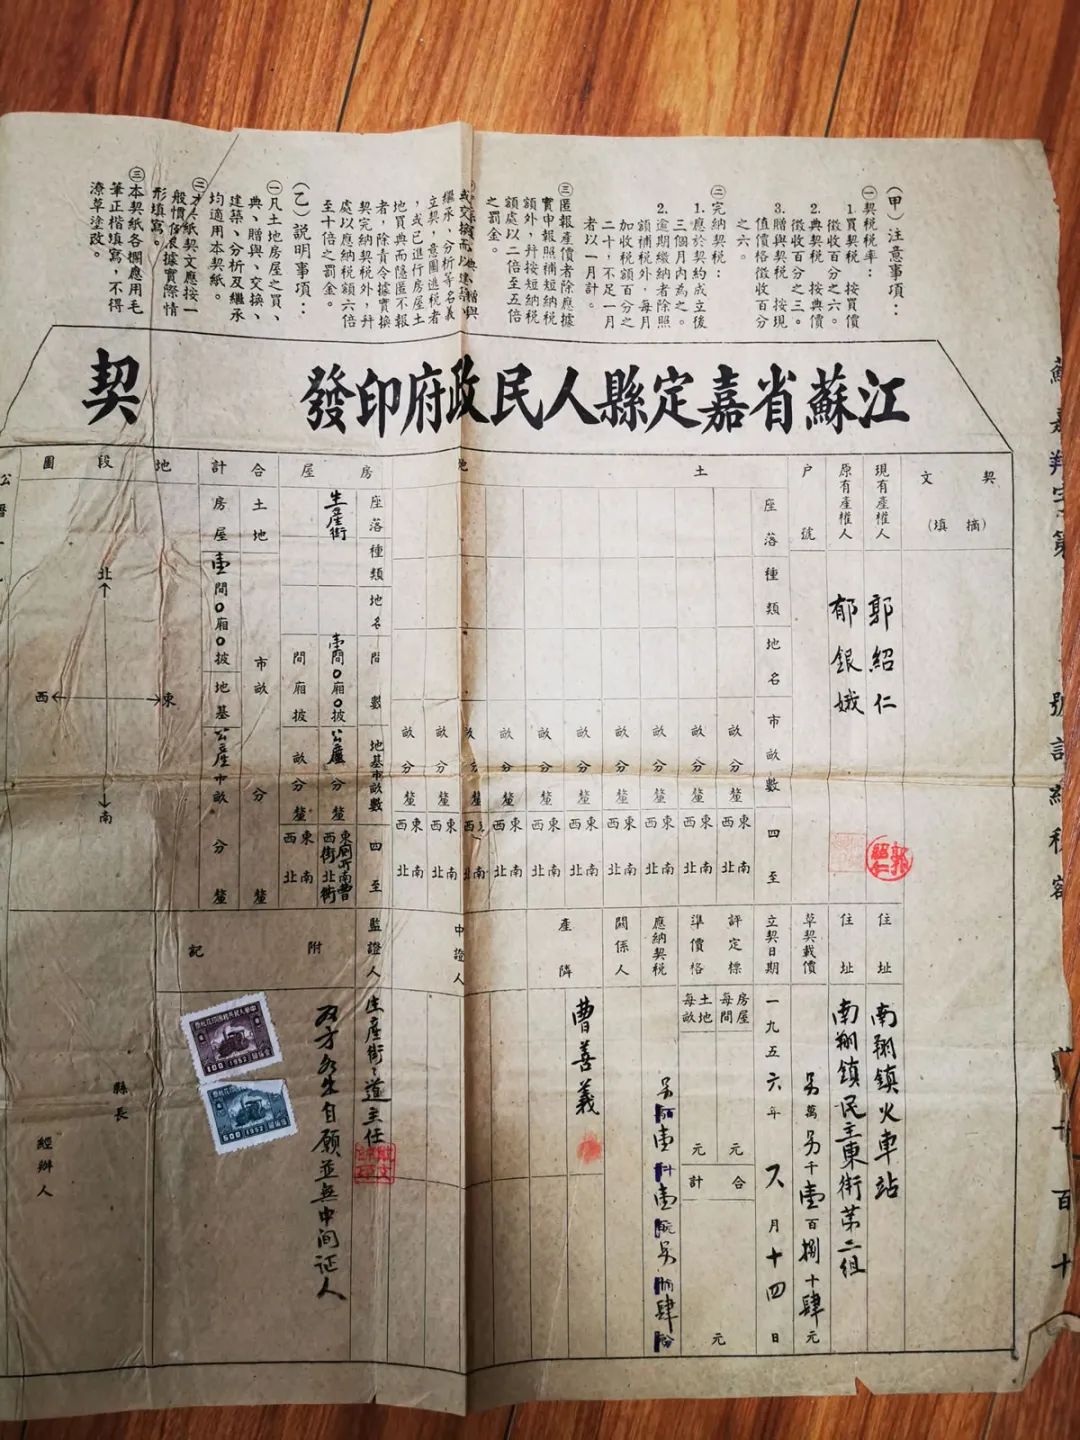 (甲)注意事項：
㊀契税税率：
1.買契税　按買價
徵收百分之六。
2.典契税　按典價
徵收百分之三。
3.贈與契税　按現
值價格徵收百分
之六。
㊁完納契税：
1.應於契約成立後
三個月内為之。
2.逾期繳納者除照
額補税外，每月
加收税額百分之
二十，不足一月
者以一月計。
㊂匿報產價者除應據
實申報照補短納税
額外，幷按短納税
額處以二倍至五倍
之罰金。
繼承、分析等名義
立契，意圖逃税者
，或已進行房屋土
地買典而隱匿不報
者，除責令據實换
契完納契税外，幷
處以應納税額六倍
至十倍之罰金。
(乙)説明事項：
㊀凡土地房屋之買、
典、贈與、交換、
建築、分析及繼承
均適用本契紙。
㊁本契紙契文應按一
般慣例根據實際情
形填寫。
㊂本契紙各欄應用毛
筆正楷填寫，不得
潦草塗改。
江蘇省嘉定縣人民政府印發
契
契文
(摘填)
現有產權人
郭紹仁
住址
南翔鎮火車站
原有產權人
郁銀娥
住址
南翔鎮民主東街第二組
户號
草契載價
另萬另千壹百捌十肆元
土地
座落
種類
地名
市畝數
四至
立契日期
一九五六年 月十四日
畝分釐
東南西北
畝分釐
東南西北
畝分釐
東南西北
畝分釐
東南西北
畝分釐
東南西北
畝分釐
東南西北
畝分釐
東南西北
畝分釐
東南西北
畝分釐
東南西北
畝分釐
東南西北
評定標準價格
房屋每間
元
土地每畝
元
合計
元
應納契税
關係人
產隣
曹善義
中證人
監證人
生產街街道主任
房屋
座落
種類
地名
間數
地基市畝數
四至
生產街
壹間0廂0披
間廂披
畝分釐
東南西北
合計
土地
市畝
分
釐
房屋
壹間0廂0披
地基
公產市畝
分
釐
附記
双方永生自願並無中间证人
地段圖
北
東
西
南
縣長
經辦人
郭紹仁